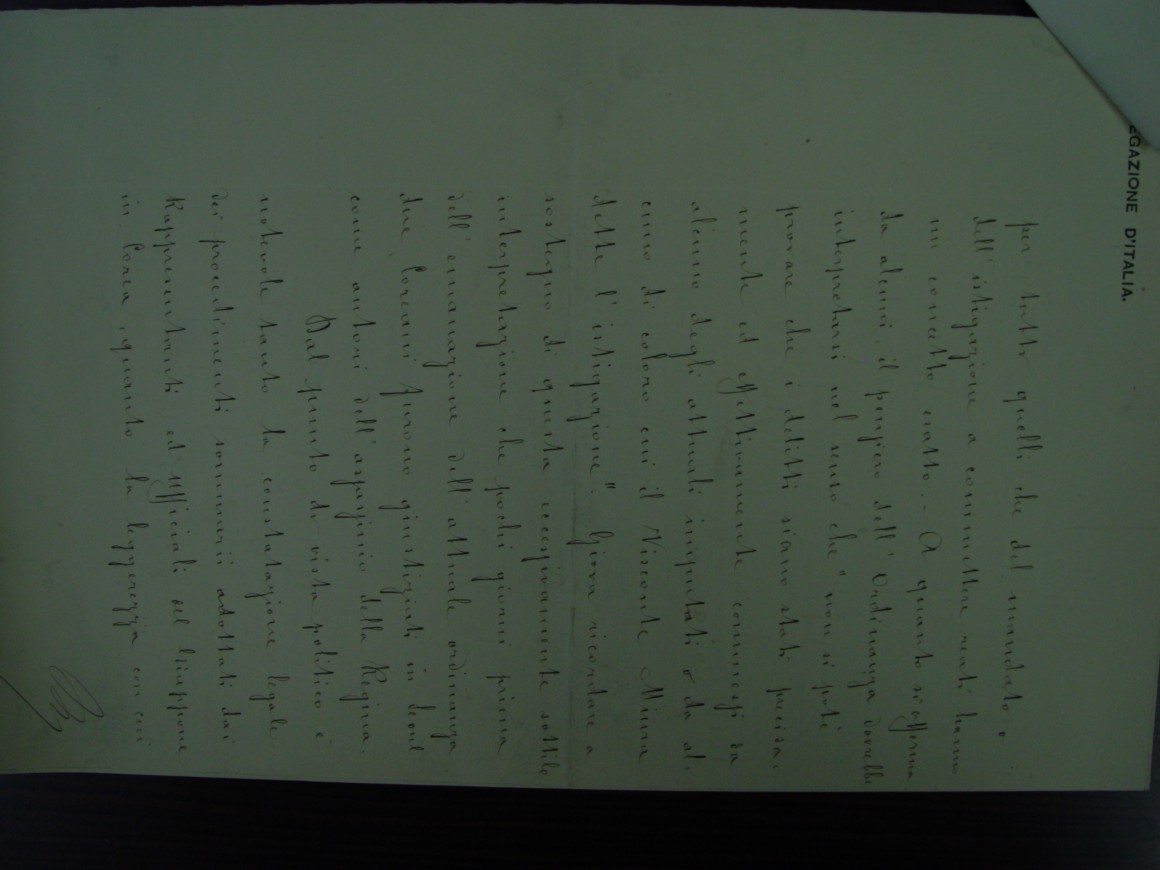 EGAZIONE D'ITALIA.
per tutto quelli che del mandato o
dell'istigazione a commettere reati hanno
un concetto esatto. - A quanto si afferma
da alcuni, il pensiero dell'Ordinanza dovrebbe
interpretarsi nel senso che "non si poté
provare che i delitti siano stati precisa-
mente ed effettivamente commessi da
alcuno degli attuali imputati o da al-
cuno di coloro cui il Visconte Miura
dette l'istigazione". Giova ricordare a
sostegno di questa eccessivamente sottile
interpretazione che pochi giorni prima
dell'emanazione dell'attuale ordinanza
due Coreani furono giustiziati in Seoul
come autori dell'assassinio della Regina.
Dal punto di vista politico è
notevole tanto la constatazione legale
dei procedimenti sommarii adottati dai
Rappresentanti ed Ufficiali del Giappone
in Corea, quanto la leggerezza con cui